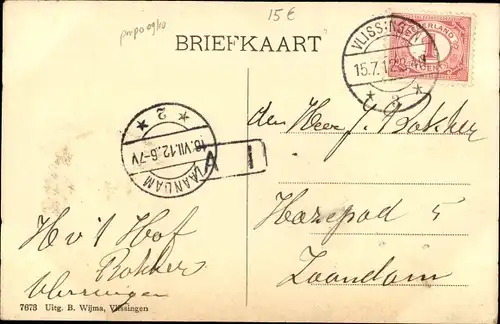 15 €
BRIEFKAART
VLISSINGEN
15.7.12 3-4N
NEDERLAND
1
CENT
2
ZAANDAM
16.VII.12.6-7V
A 1
den Heer J. Bakker
Hazepad 5
Zaandam
H v 't Hof
Bakker
Vlissingen
7673 Uitg. B. Wijma, Vlissingen